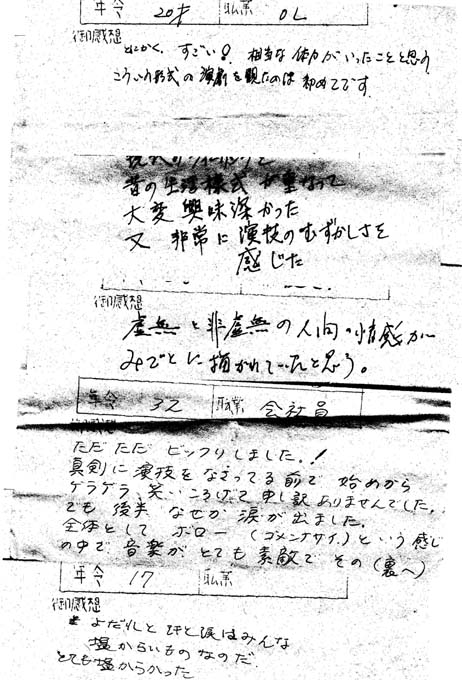 年令 20才 職業 OL
御感想
とにかく、すごい!。相当な体力がいったことと思う
こういう形式の演劇を観たのは初めてです。
昔の生活様式が重なって
大変興味深かった
又 非常に演技のむずかしさを
感じた
御感想
虚無と非虚無の人間の情感が
みごとに描かれていたと思う。
年令 32 職業 会社員
御感想
ただただ ビックリしました。!
真剣に演技をなさってる前で 始めから
ゲラゲラ 笑いころげて 申し訳ありませんでした。
でも 後半 なぜか 涙が出ました。
全体として ボロー (ゴメンナサイ) という感じ
の中で 音楽が とても 素敵で その (裏へ)
年令 17 職業
御感想
よだれと 汗と涙はみんな
塩からいものなのだ
とても塩からかった